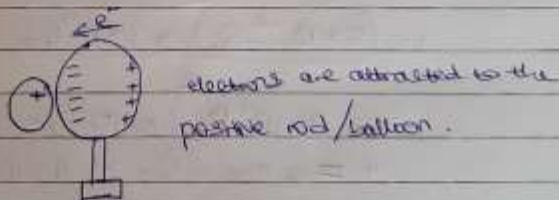 e⁻
electrons are attracted to the
positive rod/balloon.